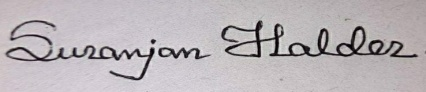 Suranjan Halder